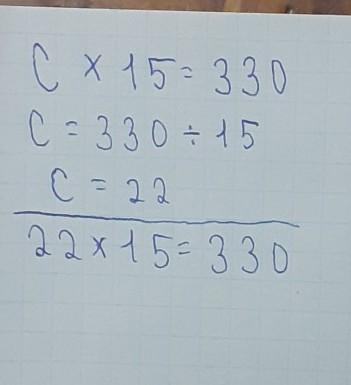 C × 15 = 330
C = 330 ÷ 15
C = 22
22 × 15 = 330